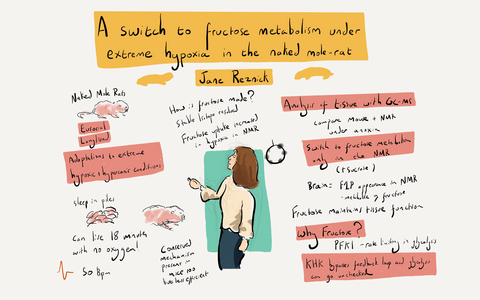 A switch to fructose metabolism under
extreme hypoxia in the naked mole-rat
Jane Reznick
Naked Mole Rats
Eusocial
Longlived
Adaptations to extreme
hypoxic + hypercapnic conditions
sleep in piles
Can live 18 minutes
with no oxygen!
50 Bpm
How is fructose made?
Stable isotope resolved
Fructose uptake increased
in hypoxia in NMR
Conserved
mechanism
present in
mice too
but less efficient
Analysis of tissue with GC-MS
compare mouse + NMR
under anoxia
Switch to fructose metabolism
only in the NMR
(+ sucrose)
Brain = F1P appearance in NMR
- metabolite of fructose
Fructose maintains tissue function
Why Fructose?
PFK1 - rate limiting in glycolysis
KHK bypasses feedback loop and glycolysis
can go unchecked